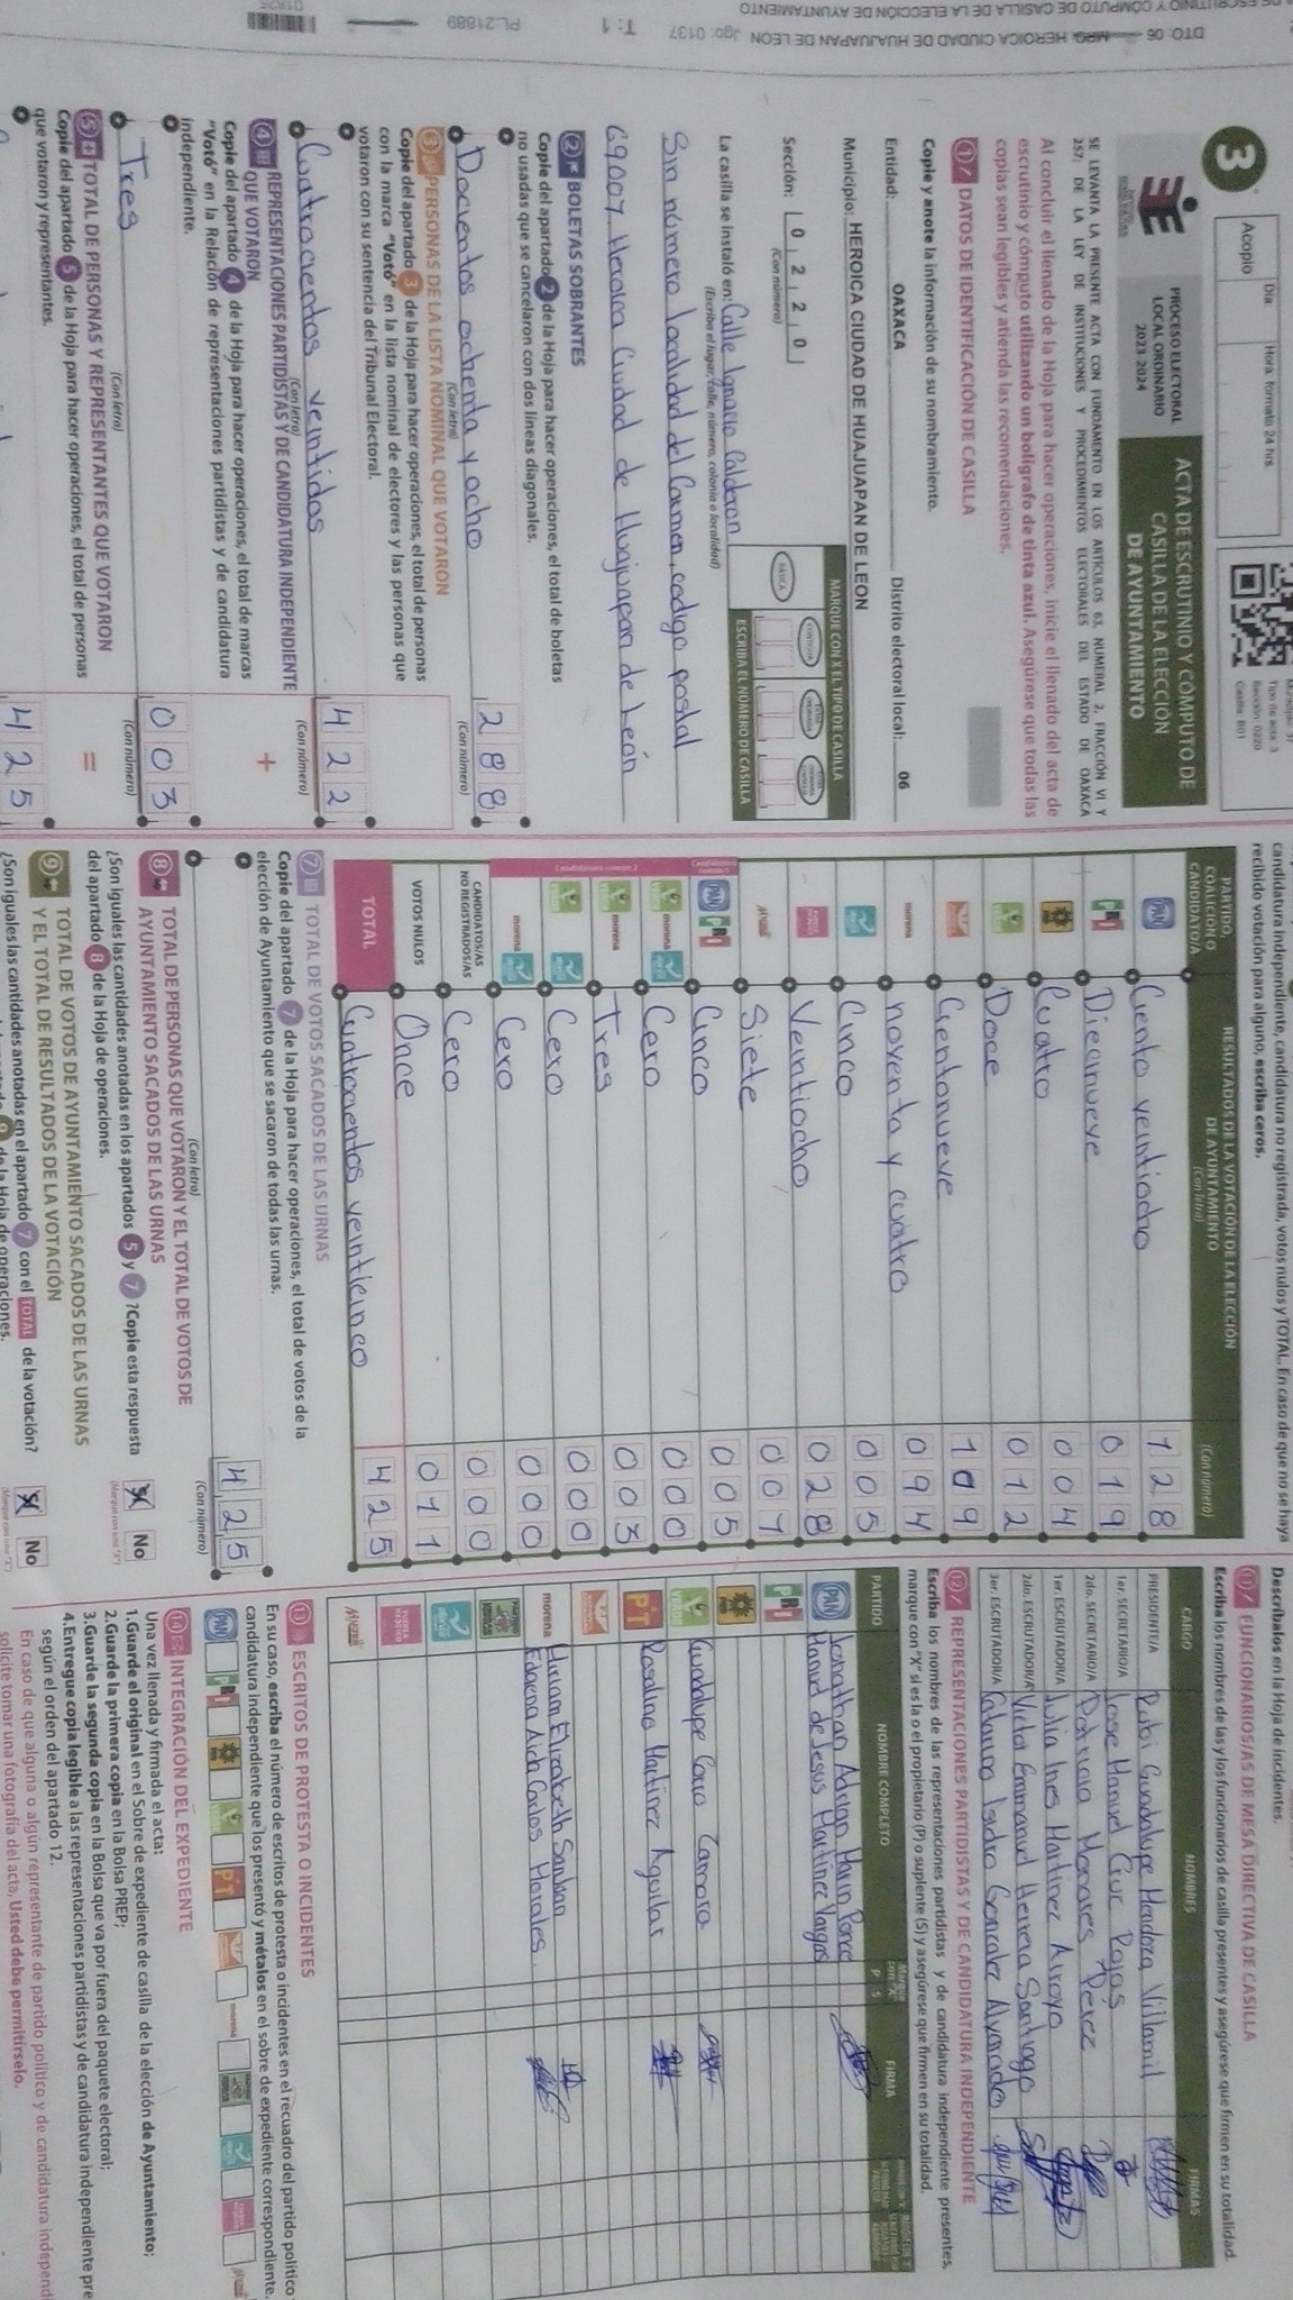 DTO: 06 MRG. HEROICA CIUDAD DE HUAJUAPAN DE LEON Jgo: 0137 T: 1 PL.21889
ESCRUTINIO Y CÓMPUTO DE CASILLA DE LA ELECCIÓN DE AYUNTAMIENTO
3
Acopio
Día:
Hora: formato 24 hrs.
Tipo de acta: 3
Sección: 0220
Casilla: B01
PROCESO ELECTORAL
LOCAL ORDINARIO
2023-2024
ACTA DE ESCRUTINIO Y CÓMPUTO DE
CASILLA DE LA ELECCIÓN
DE AYUNTAMIENTO
SE LEVANTA LA PRESENTE ACTA CON FUNDAMENTO EN LOS ARTÍCULOS 63, NUMERAL 2, FRACCIÓN VI Y
257; DE LA LEY DE INSTITUCIONES Y PROCEDIMIENTOS ELECTORALES DEL ESTADO DE OAXACA
Al concluir el llenado de la Hoja para hacer operaciones, inicie el llenado del acta de
escrutinio y cómputo utilizando un bolígrafo de tinta azul. Asegúrese que todas las
copias sean legibles y atienda las recomendaciones.
1 DATOS DE IDENTIFICACIÓN DE CASILLA
Copie y anote la información de su nombramiento.
Entidad: OAXACA Distrito electoral local: 06
Municipio: HEROICA CIUDAD DE HUAJUAPAN DE LEON
Sección: 0 2 2 0
(Con número)
MARQUE CON X EL TIPO DE CASILLA
BÁSICA
CONTIGUA
ESCRIBA EL NÚMERO DE CASILLA
La casilla se instaló en: Calle Ignacio Calderon
(Escriba el lugar, calle, número, colonia o localidad)
Sin número localidad del Carmen, codigo postal
69007, Heroica Ciudad de Huajuapan de León
2 BOLETAS SOBRANTES
Copie del apartado 2 de la Hoja para hacer operaciones, el total de boletas
no usadas que se cancelaron con dos líneas diagonales.
Docientos ochenta y ocho 2 8 8
(Con letra) (Con número)
3 PERSONAS DE LA LISTA NOMINAL QUE VOTARON
Copie del apartado 3 de la Hoja para hacer operaciones, el total de personas
con la marca "Votó" en la lista nominal de electores y las personas que
votaron con su sentencia del Tribunal Electoral.
Cuatrocientos veintidos 4 2 2
(Con letra) (Con número)
4 REPRESENTACIONES PARTIDISTAS Y DE CANDIDATURA INDEPENDIENTE
QUE VOTARON +
Copie del apartado 4 de la Hoja para hacer operaciones, el total de marcas
"Votó" en la Relación de representaciones partidistas y de candidatura
independiente.
Tres 0 0 3
(Con letra) (Con número)
5 TOTAL DE PERSONAS Y REPRESENTANTES QUE VOTARON =
Copie del apartado 5 de la Hoja para hacer operaciones, el total de personas
que votaron y representantes.
4 2 5
candidatura independiente, candidatura no registrada, votos nulos y TOTAL. En caso de que no se haya
recibido votación para alguno, escriba ceros.
PARTIDO, COALICIÓN O CANDIDATO/A
RESULTADOS DE LA VOTACIÓN DE LA ELECCIÓN
DE AYUNTAMIENTO
(Con letra) (Con número)
PAN Ciento veintiocho 1 2 8
PRI Diecinueve 0 1 9
Cuatro 0 0 4
VERDE Doce 0 1 2
Cientonueve 1 0 9
morena noventa y cuatro 0 9 4
Cinco 0 0 5
Veintiocho 0 2 8
Siete 0 0 7
PAN PRI Cinco 0 0 5
VERDE morena Cero 0 0 0
VERDE morena Tres 0 0 3
VERDE Cero 0 0 0
morena Cero 0 0 0
CANDIDATOS/AS
NO REGISTRADOS/AS Cero 0 0 0
VOTOS NULOS Once 0 1 1
TOTAL Cuatrocientos veinticinco 4 2 5
7 TOTAL DE VOTOS SACADOS DE LAS URNAS
Copie del apartado 7 de la Hoja para hacer operaciones, el total de votos de la
elección de Ayuntamiento que se sacaron de todas las urnas.
4 2 5
(Con letra) (Con número)
8 TOTAL DE PERSONAS QUE VOTARON Y EL TOTAL DE VOTOS DE
AYUNTAMIENTO SACADOS DE LAS URNAS
¿Son iguales las cantidades anotadas en los apartados 5 y 7 ?Copie esta respuesta
del apartado 8 de la Hoja de operaciones.
No
(Marque con una "X")
9 TOTAL DE VOTOS DE AYUNTAMIENTO SACADOS DE LAS URNAS
Y EL TOTAL DE RESULTADOS DE LA VOTACIÓN
¿Son iguales las cantidades anotadas en el apartado 7 con el TOTAL de la votación?
No
Descríbalos en la Hoja de incidentes.
11 FUNCIONARIOS/AS DE MESA DIRECTIVA DE CASILLA
Escriba los nombres de las y los funcionarios de casilla presentes y asegúrese que firmen en su totalidad.
CARGO NOMBRES FIRMAS
PRESIDENTE/A Rubi Guadalupe Mendoza Villamil
1er. SECRETARIO/A Jose Manuel Cruz Rojas
2do. SECRETARIO/A Patricia Morales Perez
1er. ESCRUTADOR/A Julia Ines Martinez Arroyo
2do. ESCRUTADOR/A Victor Emmanuel Herrera Santiago
3er. ESCRUTADOR/A Catarino Isidro Gonzalez Alvarado
12 REPRESENTACIONES PARTIDISTAS Y DE CANDIDATURA INDEPENDIENTE
Escriba los nombres de las representaciones partidistas y de candidatura independiente presentes,
marque con "X" si es la o el propietario (P) o suplente (S) y asegúrese que firmen en su totalidad.
PARTIDO NOMBRE COMPLETO P S FIRMA
PAN Jonathan Adrian Marin Ponce
Manuel de Jesus Martinez Vargas
PRI
VERDE Guadalupe Coria Zamora
PT Rosalina Martinez Aguilar
morena Miriam Elizabeth Sanjuan
Edaena Aida Carlos Morales
13 ESCRITOS DE PROTESTA O INCIDENTES
En su caso, escriba el número de escritos de protesta o incidentes en el recuadro del partido político
candidatura independiente que los presentó y métalos en el sobre de expediente correspondiente.
PAN PRI VERDE PT morena
14 INTEGRACIÓN DEL EXPEDIENTE
Una vez llenada y firmada el acta:
1.Guarde el original en el Sobre de expediente de casilla de la elección de Ayuntamiento;
2.Guarde la primera copia en la Bolsa PREP;
3.Guarde la segunda copia en la Bolsa que va por fuera del paquete electoral;
4.Entregue copia legible a las representaciones partidistas y de candidatura independiente pre
según el orden del apartado 12.
En caso de que alguna o algún representante de partido político y de candidatura independ
solicite tomar una fotografía del acta, Usted debe permitírselo.